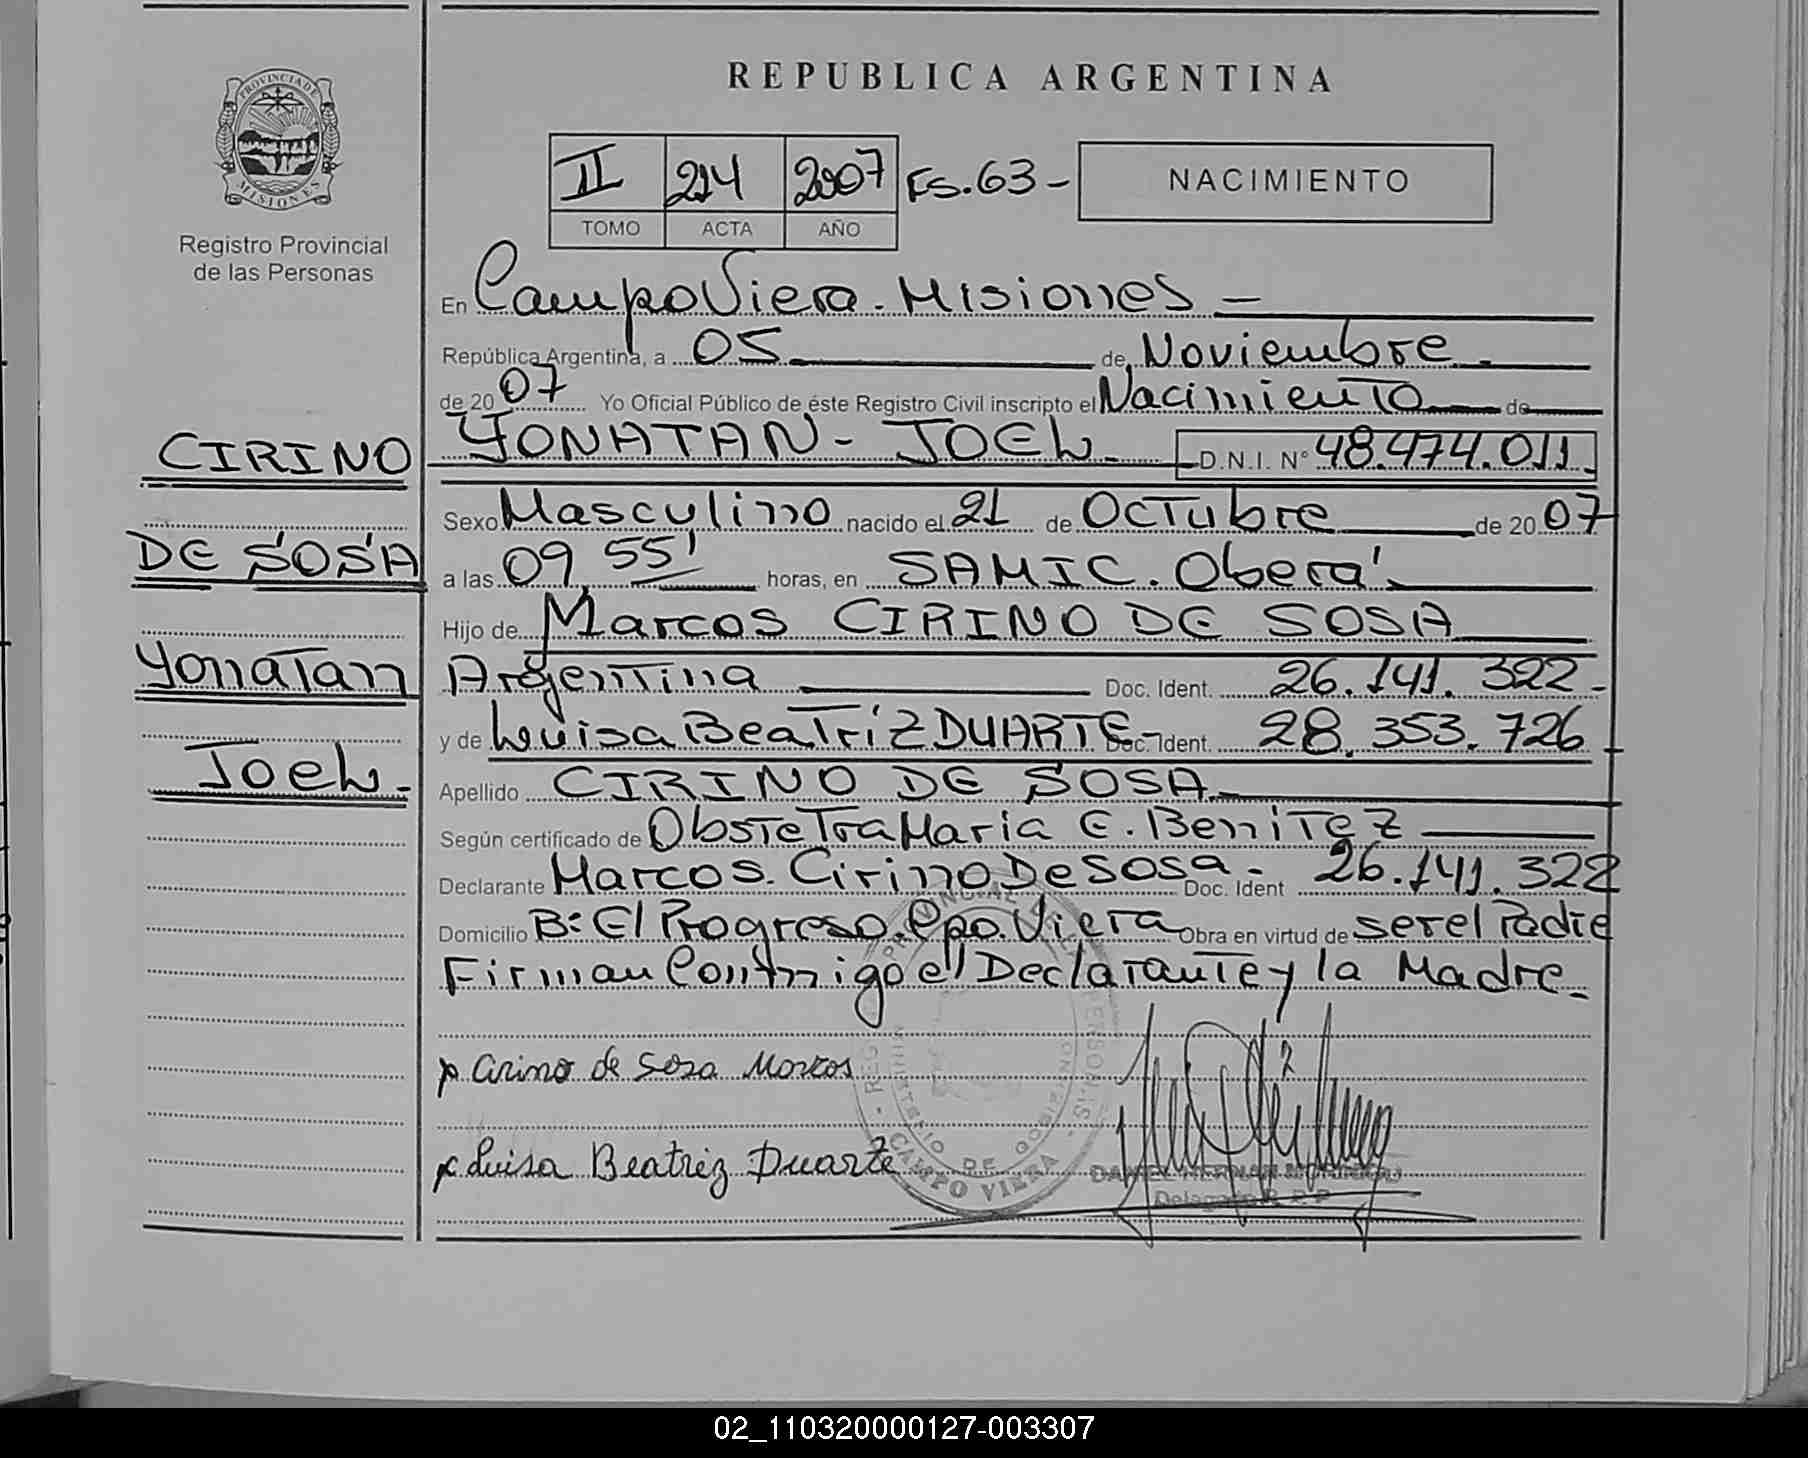 REPUBLICA ARGENTINA
PROVINCIA DE
MISIONES
Registro Provincial
de las Personas
II 214 2007 Fs. 63 -
TOMO ACTA AÑO
NACIMIENTO
En Campo Viera - Misiones -
República Argentina, a 05 de Noviembre -
de 2007 Yo Oficial Público de éste Registro Civil inscripto el Nacimiento de
YONATAN - JOEL - D.N.I. N° 48.474.011.
CIRINO
DE SOSA
Yonatan
Joel -
Sexo Masculino nacido el 21 de Octubre de 2007
a las 09 55' horas, en SAMIC. Oberá
Hijo de Marcos CIRINO DE SOSA
Argentina Doc. Ident. 26.141.322 -
y de Luisa Beatriz DUARTE - Doc. Ident. 28.353.726
Apellido CIRINO DE SOSA
Según certificado de Obstetra Maria E. Benitez
Declarante Marcos. Cirino De Sosa - Doc. Ident 26.141.322
Domicilio B: El Progreso Cpo. Viera Obra en virtud de ser el Padre
Firman Conmigo el Declarante y la Madre -
x Cirino de Sosa Marcos
x Luisa Beatriz Duarte
MINISTERIO DE GOBIERNO
CAMPO VIERA
Delegado R.P.P.
02_110320000127-003307